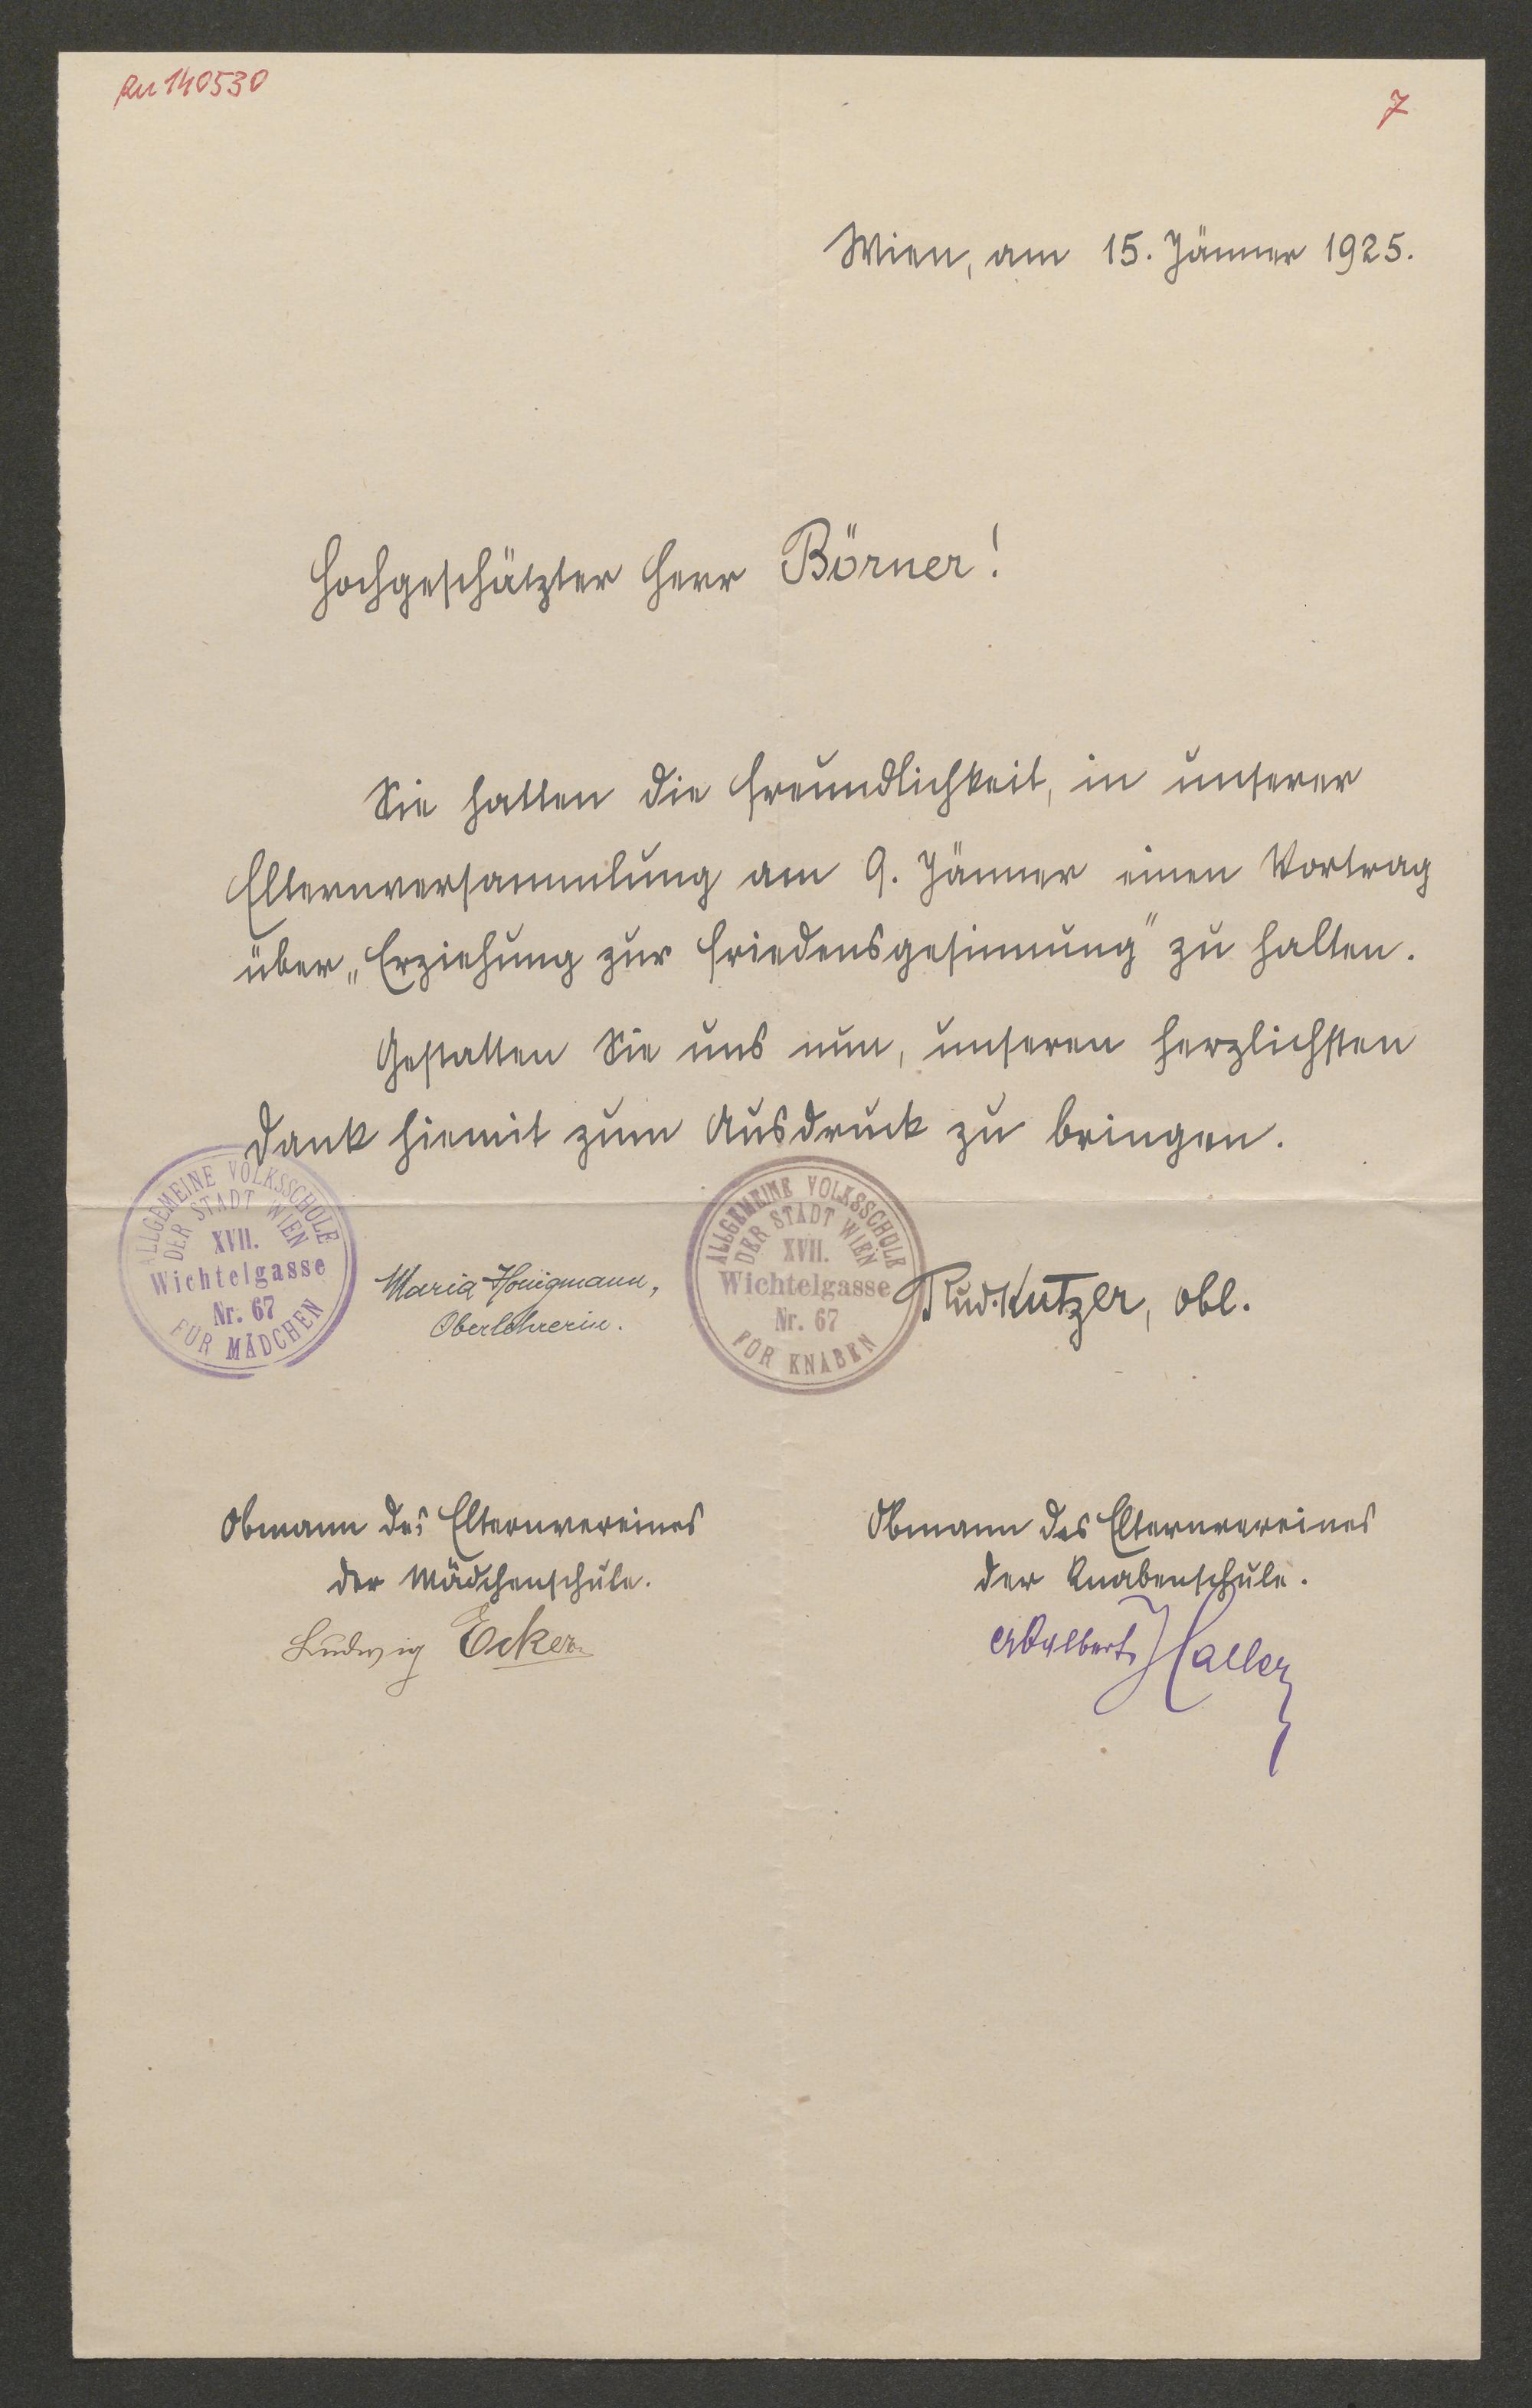 RN 140530
7
Wien, am 15. Jänner 1925.
Hochgeschätzter Herr Börner!
Sie hatten die Freundlichkeit, in unserer
Elternversammlung am 9. Jänner einen Vortrag
über „Erziehung zur Friedensgesinnung" zu halten.
Gestatten Sie uns nun, unseren herzlichsten
Dank hiemit zum Ausdruck zu bringen.
ALLGEMEINE VOLKSSCHULE
DER STADT WIEN
XVII.
Wichtelgasse
Nr. 67
FÜR MÄDCHEN
Maria Honigmann,
Oberlehrerin.
ALLGEMEINE VOLKSSCHULE
DER STADT WIEN
XVII.
Wichtelgasse
Nr. 67
FÜR KNABEN
Rud. Kutzer, Obl.
Obmann des Elternvereines
der Mädchenschule.
Ludwig Ecker
Obmann des Elternvereines
der Knabenschule.
Adalbert Haller